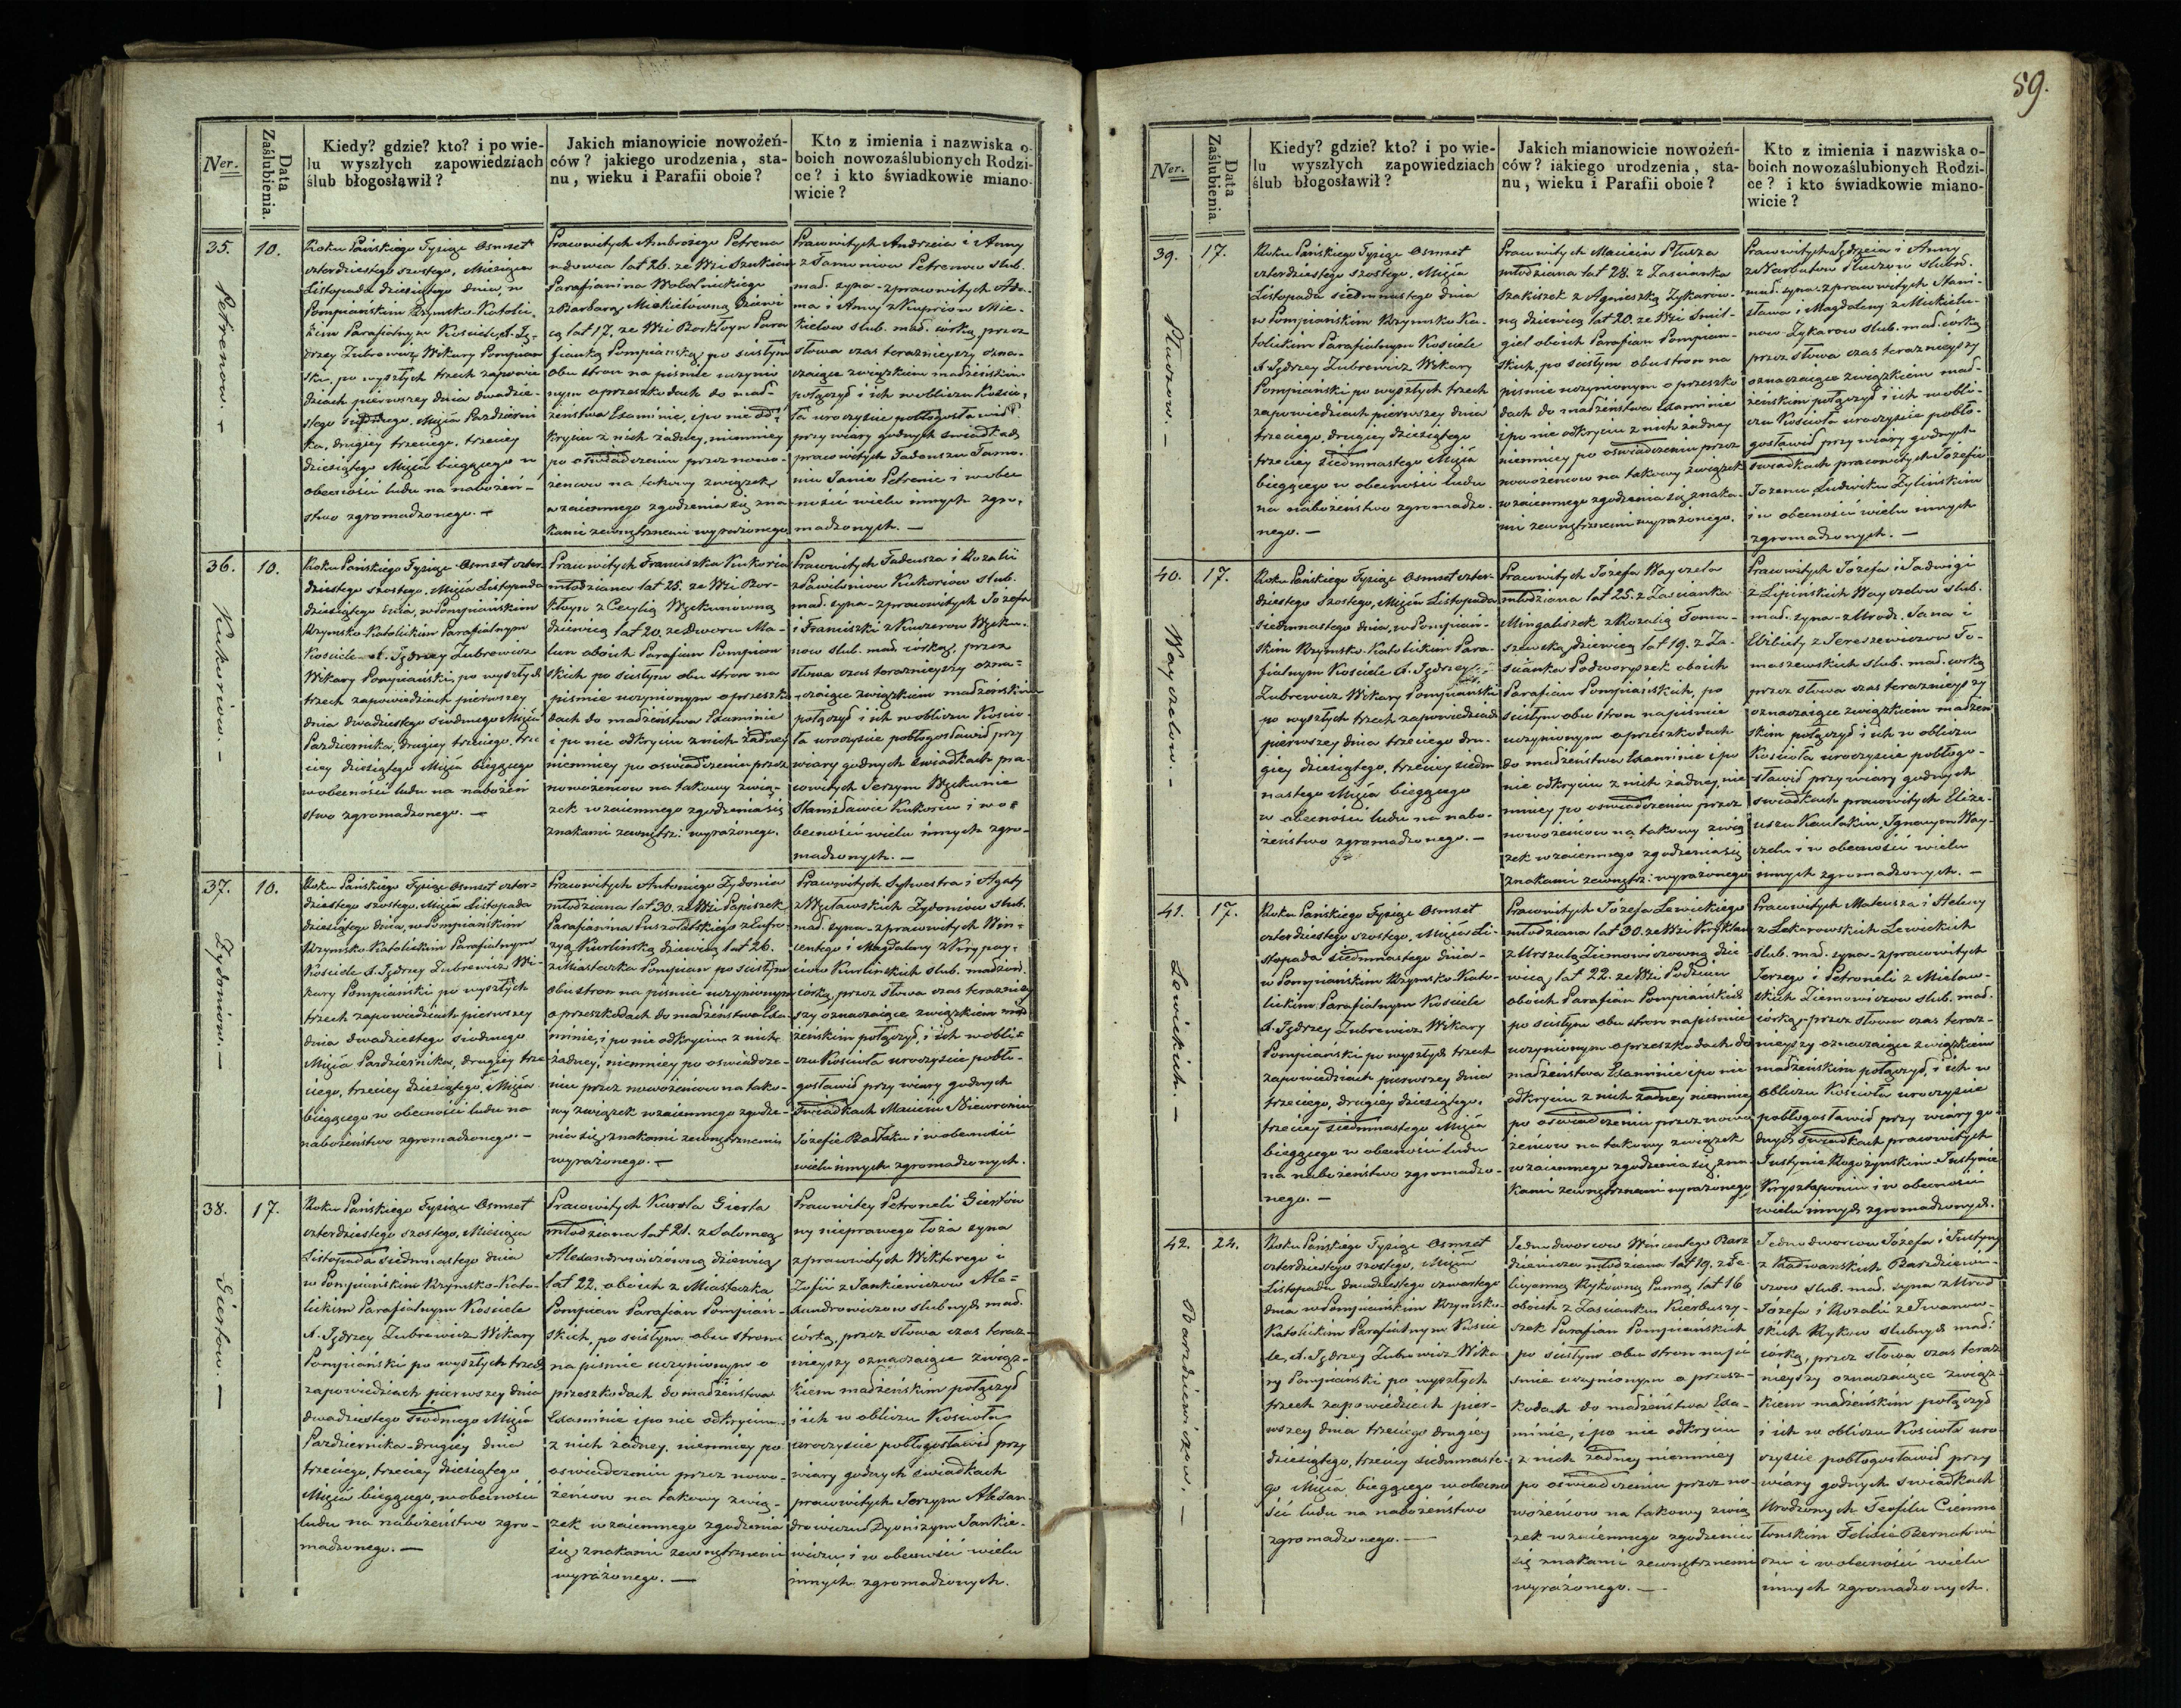 59.
Ner.
Data
Zaślubienia.
Kiedy? gdzie? kto? i po wie-
lu wyszłych zapowiedziach
ślub błogosławił?
Jakich mianowicie nowożeń-
ców? jakiego urodzenia, sta-
nu, wieku i Parafii oboie?
Kto z imienia i nazwiska o-
boich nowozaślubionych Rodzi-
ce? i kto świadkowie miano-
wicie?
35.
10.
Petrenow. -
Roku Pańskiego Tysiąc Osmset
czterdziestego szostego, Miesiąca
Listopada dziesiątego dnia, w
Pompiańskim Rzymsko Katolic-
kim Parafialnym Kościele, X. Ję-
drzey Zubrewicz Wikary Pompian
ski, po wyszłych trzech zapowie
dziach pierwszey dnia dwadzie-
stego siodmego, Mięsią Pazdzierni
ka, drugiey trzeciego, trzeciey
dziesiątego Mięsią bieżącego w
obecności ludu na nabożeń-
stwo zgromadzonego. -
Pracowitych Ambrożego Petrena
wdowca lat 26. ze Wsi
Parafianina
z Barbarą Mickielowną dziewi
cą lat 17. ze Wsi Borkłoyn Para
fianką Pompiańską, po scisłym
obu stron na piśmie uczynio
nym o przeszkodach do mał-
żeństwa Examinie, i po nie od-
kryciu z nich żadney, niemniey
po oswiadczeniu przez nowo-
żencow na takowy związek
wzaiemnego zgodzenia się zna
kami zewnętrznemi wyrażonego
Pracowitych Andrzeia i Anny
z Tamoniow Petrenow slub.
mał. syna - z pracowitych Ada-
ma i Anny z Kupriow Mic-
kielow slub. mał. córką, przez
słowa czas teraznieyszy ozna-
czaiące związkiem małżeńskim
połączył i ich w obliczu Kościo-
ła uroczyście pobłogosławił
przy wiary godnych swiadkach
pracowitych Tadeuszu Tamo-
niu Janie Petrenie i w obec
ności wielu innych zgro-
madzonych. -
36.
10.
Kukoriow. -
Roku Pańskiego Tysiąc Osmset czter-
dziestego szostego, Mięsią Listopada
dziesiątego dnia, w Pompiańskim
Rzymsko Katolickim Parafialnym
Kościele X. Jędrzey Zubrewicz
Wikary Pompiański, po wyszłych
trzech zapowiedziach pierwszey
dnia dwadziestego siodmego Mięsią
Pazdziernika, drugiey trzeciego, trze
ciey dziesiątego Mięsią bieżącego
w obecności ludu na nabożeń
stwo zgromadzonego. -
Pracowitych Franciszka Kukoria
młodziana lat 25. ze Wsi Bor-
kłoyn z Cecylią Wękunowną
dziewicą lat 20. ze Dworu Ma-
lun oboich Parafian Pompian
skich po scisłym obu stron na
piśmie uczynionym o przeszko
dach do małżeństwa Examinie
i po nie odkryciu z nich żadney
niemniey po oswiadczeniu przez
nowożencow na takowy zwią-
zek wzaiemnego zgodzenia się
znakami zewnętrz: wyrażonego.
Pracowitych Tadeusza i Rozalii
z Kukoriow slub.
mał. syna - z pracowitych Jozefa
i Franciszki z Kuczerow Węku-
now slub. mał. córką, przez
słowa czas teraznieyszy ozna-
czaiące związkiem małżeńskim
połączył i ich w obliczu Kościo-
ła uroczyście pobłogosławił przy
wiary godnych swiadkach pra-
cowitych Jerzym Wękunie
Stanisławie Kukoriu i w o-
becności wielu innych zgro-
madzonych. -
37.
10.
Zydoniow. -
Roku Pańskiego Tysiąc Osmset czter-
dziestego szostego, Mięsią Listopada
dziesiątego dnia, w Pompiańskim
Rzymsko Katolickim Parafialnym
Kościele X. Jędrzey Zubrewicz Wi-
kary Pompiański po wyszłych
trzech zapowiedziach pierwszey
dnia dwadziestego siodmego
Mięsią Pazdziernika, drugiey trze
ciego, trzeciey dziesiątego, Mięsią
bieżącego w obecności ludu na
nabożeństwo zgromadzonego. -
Pracowitych Antoniego Zydonia
młodziana lat 30. ze Wsi Papiszek
Parafianina Puszołatskiego z Eufro-
zyą Kurlińską dziewicą lat 26.
z Miasteczka Pompian po scisłym
obu stron na piśmie uczynionym
o przeszkodach do małżeństwa Exa-
minie, i po nie odkryciu z nich
żadney, niemniey po oswiadcze-
niu przez nowożencow na tako-
wy związek wzaiemnego zgodze-
nia się znakami zewnętrznemi
wyrażonego. -
Pracowitych Sylwestra i Agaty
z Węcławskich Zydoniow slub.
mał. syna - z pracowitych Win-
centego i Magdaleny z
Kurlińskich slub. małżeń.
córką, przez słowa czas terazniey
szy oznaczaiące związkiem mał
żeńskim połączył, i ich w obli-
czu Kościoła uroczyście pobło-
gosławił przy wiary godnych
swiadkach Macieiu Niewroniu
Józefie i w obecności
wielu innych zgromadzonych.
38.
17.
Giertow. -
Roku Pańskiego Tysiąc Osmset
czterdziestego szostego, Miesiąca
Listopada siedmnastego dnia
w Pompiańskim Rzymsko-Kato-
lickim Parafialnym Kościele
X. Jędrzey Zubrewicz Wikary
Pompiański po wyszłych trzech
zapowiedziach pierwszey dnia
dwadziestego siodmego Mięsią
Pazdziernika - drugiey dnia
trzeciego, trzeciey dziesiątego
Mięsią bieżącego, w obecności
ludu na nabożeństwo zgro-
madzonego. -
Pracowitych Karola Gierta
młodziana lat 21. z Salomeą
Alexandrowiczówną dziewicą
lat 22. oboich z Miasteczka
Pompian Parafian Pompiań-
skich, po scisłym obu stron
na piśmie uczynionym o
przeszkodach do małżeństwa
Examinie i po nie odkryciu
z nich żadney, niemniey po
oswiadczeniu przez nowo-
żencow na takowy zwią-
zek wzaiemnego zgodzenia
się znakami zewnętrznemi
wyrażonego. -
Pracowitey Petroneli Giertów
ny nieprawego łoża syna
z pracowitych Wiktorego i
Zofii z Jankiewiczow Ale-
xandrowiczow slubnych mał.
córką, przez słowa czas teraz-
nieyszy oznaczaiące związ-
kiem małżeńskim połączył
i ich w obliczu Kościoła
uroczyście pobłogosławił przy
wiary godnych swiadkach
pracowitych Jerzym Alexan-
drowiczu Dyonizym Jankie-
wiczu i w obecności wielu
innych zgromadzonych.
Ner.
Data
Zaślubienia.
Kiedy? gdzie? kto? i po wie-
lu wyszłych zapowiedziach
ślub błogosławił?
Jakich mianowicie nowożeń-
ców? iakiego urodzenia, sta-
nu, wieku i Parafii oboie?
Kto z imienia i nazwiska o-
boich nowozaślubionych Rodzi-
ce? i kto świadkowie miano-
wicie?
39.
17.
Pluszow. -
Roku Pańskiego Tysiąc Osmset
czterdziestego szostego, Mięsią
Listopada siedmnastego dnia
w Pompiańskim Rzymsko Ka-
tolickim Parafialnym Kościele
X. Jędrzey Zubrewicz Wikary
Pompiański po wyszłych trzech
zapowiedziach pierwszey dnia
trzeciego, drugiey dziesiątego
trzeciey siedmnastego Mięsią
bieżącego w obecności ludu
na nabożeństwo zgromadzo-
nego. -
Pracowitych Macieia
młodziana lat 28. z Zascianka
Szakiszek z Agnieszką Zykarow-
ną dziewicą lat 20. ze Wsi Smil-
giel oboich Parafian Pompian-
skich, po scisłym obu stron na
piśmie uczynionym o przeszko
dach do małżeństwa Examinie
i po nie odkryciu z nich żadney
niemniey po oswiadczeniu przez
nowożencow na takowy związek
wzaiemnego zgodzenia się znaka-
mi zewnętrznemi wyrażonego.
Pracowitych Jędrzeia i Anny
z Narbutow slubn.
mał. syna - z pracowitych Stani-
sława i Magdaleny z Mickielu-
now Zykarow slub. mał. córką
przez słowa czas teraznieyszy
oznaczaiące związkiem mał-
żeńskim połączył i ich w obli-
czu Kościoła uroczyście pobło-
gosławił przy wiary godnych
swiadkach pracowitych Józefie
Ludwiku Zylińskim
i w obecności wielu innych
zgromadzonych. -
40.
17.
Wayszelow. -
Roku Pańskiego Tysiąc Osmset czter-
dziestego szostego, Mięsią Listopada
siedmnastego dnia, w Pompian-
skim Rzymsko-Katolickim Para-
fialnym Kościele X. Jędrzey
Zubrewicz Wikary Pompiański
po wyszłych trzech zapowiedziach
pierwszey dnia trzeciego dru-
giey dziesiątego, trzeciey siedm
nastego Mięsią bieżącego
w obecności ludu na nabo-
żeństwo zgromadzonego. -
Pracowitych Józefa Wayszela
młodziana lat 25. z Zascianka
Mingaliszek z Rozalią Toma-
szewską dziewicą lat 19. z Za-
scianka Podworyszek oboich
Parafian Pompiańskich, po
scisłym obu stron na piśmie
uczynionym o przeszkodach
do małżeństwa Examinie i po
nie odkryciu z nich żadney, nie
mniey po oswiadczeniu przez
nowożencow na takowy zwią
zek wzaiemnego zgodzenia się
znakami zewnętrz: wyrażonego
Pracowitych Józefa i Jadwigi
z Lipińskich Wayszelow slub.
mał. syna - z Urodz. Jana i
Elżbiety z Jereszewiczow To-
maszewskich slub. mał. córką
przez słowa czas teraznieyszy
oznaczaiące związkiem małżeń
skim połączył i ich w obliczu
Kościoła uroczyście pobłogo-
sławił przy wiary godnych
swiadkach pracowitych Elize-
uszu Kaulakiu, Ignacym Way-
szelu i w obecności wielu
innych zgromadzonych. -
41.
17.
Lewickich. -
Roku Pańskiego Tysiąc Osmset
czterdziestego szostego, Mięsią Li-
stopada siedmnastego dnia -
w Pompiańskim Rzymsko-Kato-
lickim Parafialnym Kościele
X. Jędrzey Zubrewicz Wikary
Pompiański po wyszłych trzech
zapowiedziach pierwszey dnia
trzeciego, drugiey dziesiątego,
trzeciey siedmnastego Mięsią
bieżącego w obecności ludu
na nabożeństwo zgromadzo-
nego. -
Pracowitych Józefa Lewickiego
młodziana lat 30. ze Wsi
z Urszulą Ziemowiczowną dzie
wicą lat 22. ze Wsi Podziun
oboich Parafian Pompiańskich
po scisłym obu stron na piśmie
uczynionym o przeszkodach do
małżeństwa Examinie i po nie
odkryciu z nich żadney niemniey
po oswiadczeniu przez nowo
żencow na takowy związek
wzaiemnego zgodzenia się zna-
kami zewnętrznemi wyrażonego
Pracowitych Mateusza i Heleny
z Lekarowskich Lewickich
slub. mał. syna - z pracowitych
Jerzego i Petroneli z Mielaw-
skich Ziemowiczow slub. mał.
córką, - przez słowa czas teraz-
nieyszy oznaczaiące związkiem
małżeńskim połączył, i ich w
obliczu Kościoła uroczyście
pobłogosławił przy wiary go-
dnych swiadkach pracowitych
Justynie Rogożynskim - Justynie
Krysztaponiu i w obecności
wielu innych zgromadzonych.
42.
24.
Barzdziewiczow. -
Roku Pańskiego Tysiąc Osmset
czterdziestego szostego, Mięsią
Listopada dwadziestego czwartego
dnia w Pompiańskim Rzymsko-
Katolickim Parafialnym Koscie
le, X. Jędrzey Zubrewicz Wika-
ry Pompiański po wyszłych
trzech zapowiedziach pier-
wszey dnia trzeciego drugiey
dziesiątego, trzeciey siedmnaste-
go Mięsią bieżącego w obecno
ści ludu na nabożeństwo
zgromadzonego. -
Jednodworcow Wincentego Barz
dziewicza młodziana lat 19. z Fe-
licyanną Rykówną Panną, lat 16
oboich z Zascianku Kierbuszy-
szek Parafian Pompiańskich
po scisłym obu stron na pi
smie uczynionym o przesz-
kodach do małżeństwa Exa-
minie, i po nie odkryciu
z nich żadney niemniey
po oswiadczeniu przez no-
wożencow na takowy zwią
zek wzaiemnego zgodzenia
się znakami zewnętrznemi
wyrażonego. -
Jednodworcow Józefa i Justyny
z Barzdziewi-
czow slub. mał. syna z Urod.
Józefa i Rozalii z Iwanow-
skich Rykow slubnych mał.
córką, przez słowa czas teraz
nieyszy oznaczaiące związ-
kiem małżeńskim połączył
i ich w obliczu Kościoła uro-
czyście pobłogosławił przy
wiary godnych swiadkach
Urodzonych Teofilu Ciemno
łonskim Felicie Bernatowi
czu i w obecności wielu
innych zgromadzonych.